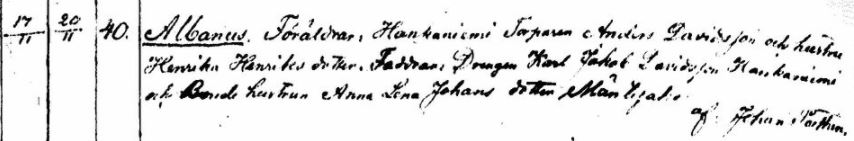 17/11 20/11 40. Albanus. Föräldrar, Hankaniemi Torparen Anders Davidsson och hustru
Henrika Henriks dotter. Faddrar, Drengen Karl Jakob Davidsson Hankaniemi
och Bonde hustrun Anna Lena Johans dotter
af Johan